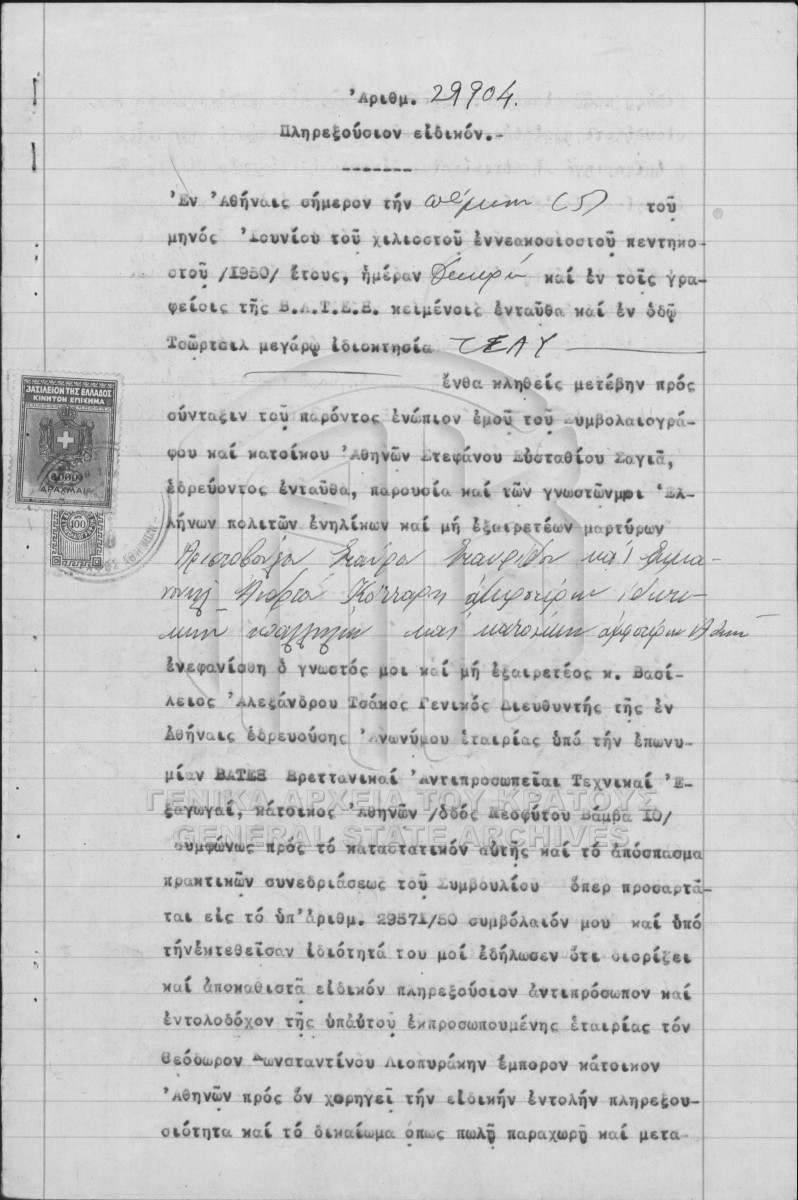 Ἀριθμ. 29904.
Πληρεξούσιον εἰδικόν.-
-------
Ἐν Ἀθήναις σήμερον τήν πέμπτην (5) τοῦ
μηνός Ἰουνίου τοῦ χιλιοστοῦ ἐννεακοσιοστοῦ πεντηκο-
στοῦ /1950/ ἔτους, ἡμέραν Δευτέραν καί ἐν τοῖς γρα-
φείοις τῆς Β.Α.Τ.Ε.Β. κειμένοις ἐνταῦθα καί ἐν ὁδῷ
Τσῶρτσιλ μεγάρῳ ἰδιοκτησία ΤΣΑΥ
ἔνθα κληθείς μετέβην πρός
σύνταξιν τοῦ παρόντος ἐνώπιον ἐμοῦ τοῦ Συμβολαιογρά-
φου καί κατοίκου Ἀθηνῶν Στεφάνου Εὐσταθίου Σαγιᾶ,
ἑδρεύοντος ἐνταῦθα, παρουσία καί τῶν γνωστῶνμοι Ἑλ-
λήνων πολιτῶν ἐνηλίκων καί μή ἐξαιρετέων μαρτύρων
Σταύρου καί
ἰδιωτι-
καί κατοίκων ἀμφοτέρων
ἐνεφανίσθη ὁ γνωστός μοι καί μή ἐξαιρετέος κ. Βασί-
λειος Ἀλεξάνδρου Τσάκος Γενικός Διευθυντής τῆς ἐν
Ἀθήναις ἑδρευούσης Ἀνωνύμου ἑταιρίας ὑπό τήν ἐπωνυ-
μίαν ΒΑΤΕΒ Βρεττανικαί Ἀντιπροσωπεῖαι Τεχνικαί Ἐ-
ξαγωγαί, κάτοικος Ἀθηνῶν /ὁδός Νεοφύτου Βάμβα 10/
συμφώνως πρός τό καταστατικόν αὐτῆς καί τό ἀπόσπασμα
πρακτικῶν συνεδριάσεως τοῦ Συμβουλίου ὅπερ προσαρτᾶ-
ται εἰς τό ὑπ'ἀριθμ. 29571/50 συμβόλαιόν μου καί ὑπό
τήνἐκτεθεῖσαν ἰδιότητά του μοί ἐδήλωσεν ὅτι διορίζει
καί ἀποκαθιστᾶ εἰδικόν πληρεξούσιον ἀντιπρόσωπον καί
ἐντολοδόχον τῆς ὑπαὐτοῦ ἐκπροσωπουμένης ἑταιρίας τόν
Θεόδωρον Κωνσταντίνου Λιοπυράκην ἔμπορον κάτοικον
Ἀθηνῶν πρός ὅν χορηγεῖ τήν εἰδικήν ἐντολήν πληρεξου-
σιότητα καί τό δικαίωμα ὅπως πωλῇ παραχωρῇ καί μετα-
ΒΑΣΙΛΕΙΟΝ ΤΗΣ ΕΛΛΑΔΟΣ
ΚΙΝΗΤΟΝ ΕΠΙΣΗΜΑ
1000
ΔΡΑΧΜΑΙ
100
ΓΕΝΙΚΑ ΑΡΧΕΙΑ ΤΟΥ ΚΡΑΤΟΥΣ
GENERAL STATE ARCHIVES